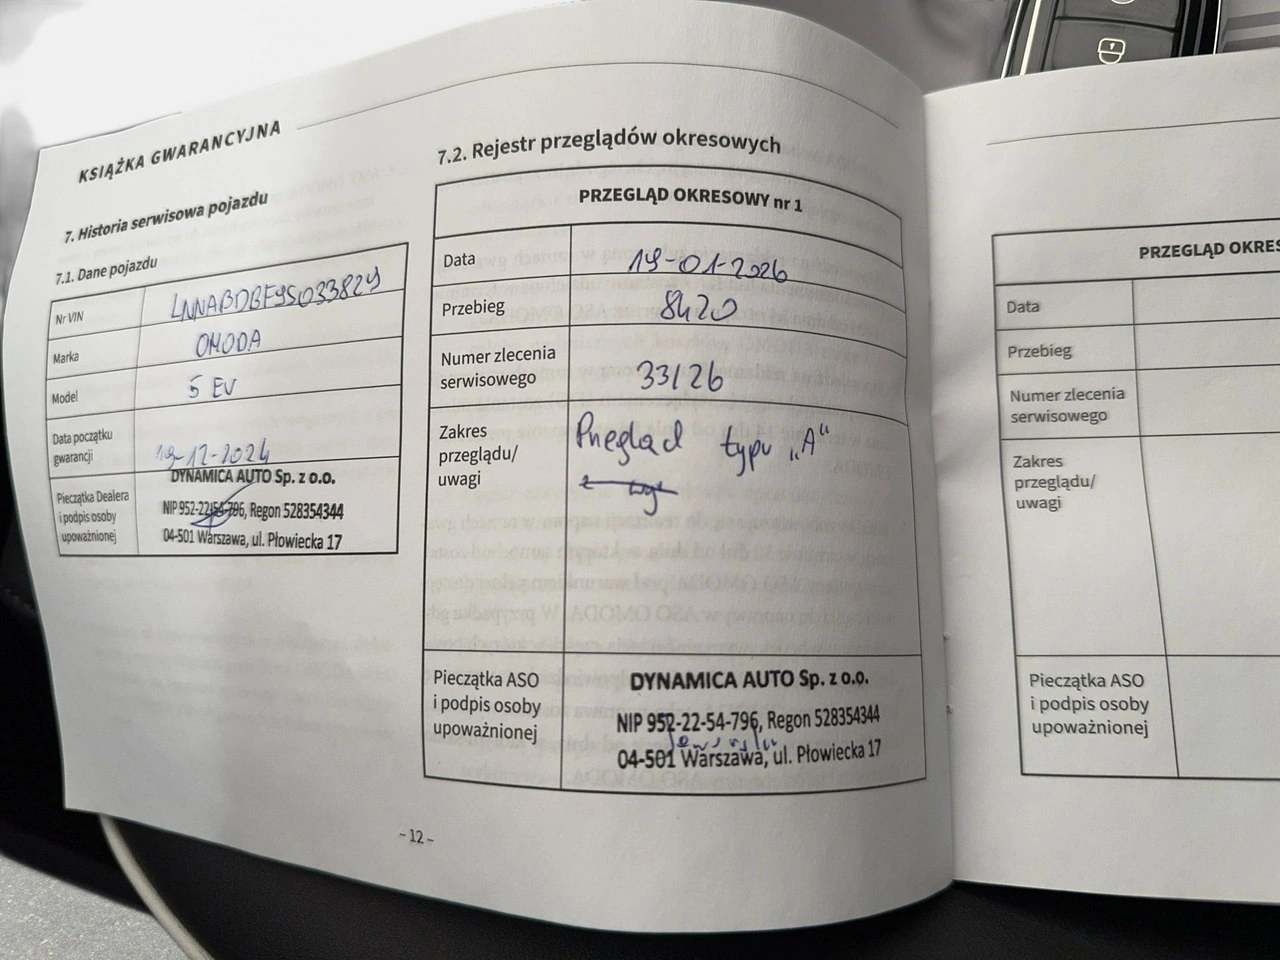 KSIĄŻKA GWARANCYJNA
7. Historia serwisowa pojazdu
7.1. Dane pojazdu
Nr VIN LNNABDBE9SO33829
Marka OMODA
Model 5 EV
Data początku
gwarancji 19-12-2024
Pieczątka Dealera
i podpis osoby
upoważnionej
DYNAMICA AUTO Sp. z o.o.
NIP 952-22-54-796, Regon 528354344
04-501 Warszawa, ul. Płowiecka 17
7.2. Rejestr przeglądów okresowych
PRZEGLĄD OKRESOWY nr 1
Data 19-01-2026
Przebieg 8420
Numer zlecenia
serwisowego 33/26
Zakres
przeglądu/
uwagi
Przegląd typu „A"
Pieczątka ASO
i podpis osoby
upoważnionej
DYNAMICA AUTO Sp. z o.o.
NIP 952-22-54-796, Regon 528354344
04-501 Warszawa, ul. Płowiecka 17
- 12 -
PRZEGLĄD OKRES
Data
Przebieg
Numer zlecenia
serwisowego
Zakres
przeglądu/
uwagi
Pieczątka ASO
i podpis osoby
upoważnionej